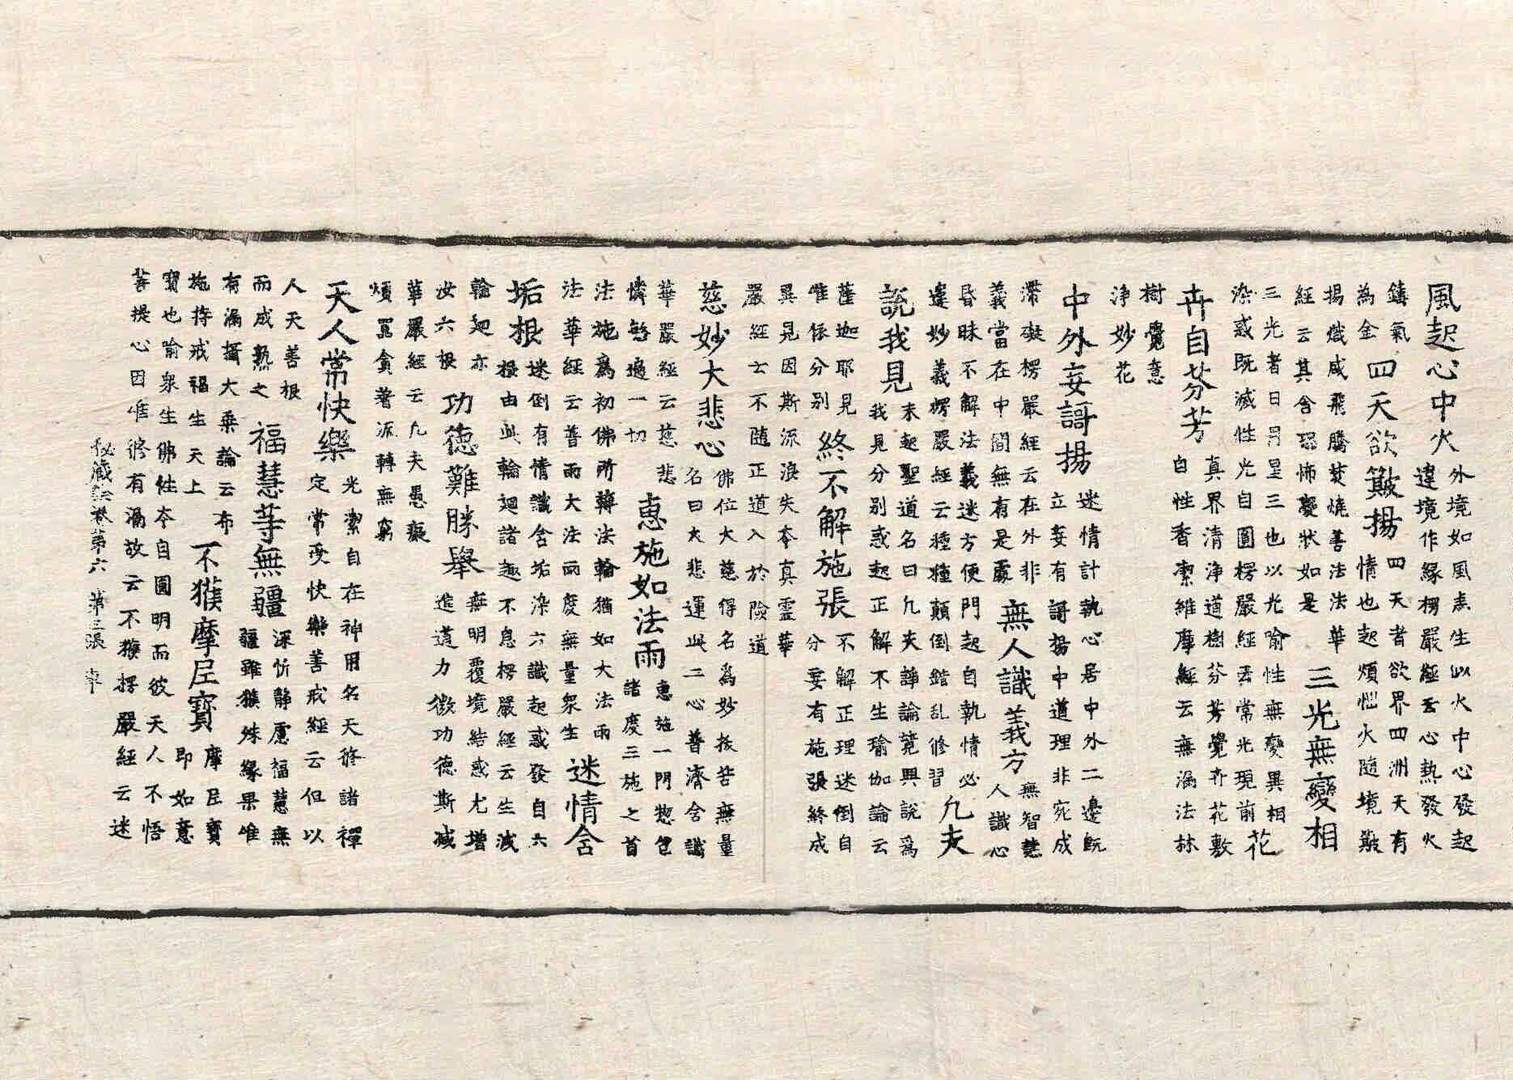 風起心中火
外境如風焦生以火中心發起
違境作緣楞嚴經云心熱發火
鑄氣
為金
四天欲簸揚
四天者欲界四洲天有
情也起煩惱火隨境簸
揚熾盛飛騰焚燒善法法華
經云其舍恐怖變狀如是
三光無變相
三光者日月星三也以光喻性無變異相
染惑既滅性光自圓楞嚴經云常光現前
花
卉自芬芳
真界清浄道樹芬芳覺卉花敷
自性香潔維摩經云無漏法林
樹覺意
浄妙花
中外妄謌揚
迷情計執心居中外二邊既
立妄有謌揚中道理非究成
滯礙楞嚴經云在外非
義當在中間無有是處
無人識義方
無智慧
人識心
昬昧不解法義迷方便門起自執情必
違妙義楞嚴經云種種顛倒錯亂修習
凡夫
說我見
未起聖道名曰凡夫諍論競興說爲
我見分別惑起正解不生瑜伽論云
薩迦耶見
唯依分別
終不解施張
不解正理迷倒自
分妄有施張終成
異見因斯流浪失本真靈華
嚴經云不隨正道入於險道
慈妙大悲心
佛位大慈得名爲妙拔苦無量
名曰大悲運此二心普濟含識
華嚴經云慈悲
憐愍遍一切
惠施如法雨
惠施一門惣包
諸度三施之首
法施爲初佛所轉法輪猶如大法雨
法華經云普雨大法雨度無量衆生
迷情含
垢根
迷倒有情識含垢染六識起惑發自六
根由此輪迴諸趣不息楞嚴經云生滅
輪迴亦
汝六根
功德難勝舉
無明覆境結惑尤增
進道力微功德斯減
華嚴經云凡夫愚癡
煩貪著流轉無窮
天人常快樂
光潔自在神用名天修諸禪
定常受快樂善戒經云但以
人天善根
而成熟之
福慧等無疆
深忻靜慮福慧無
疆雖獲殊緣果唯
有漏攝大乘論云布
施持戒福生天上
不獲摩尼寶
摩尼寶
即如意
寶也喻衆生佛性本自圓明而彼天人不悟
菩提心因唯修有漏故云不獲楞嚴經云迷
秘藏詮卷第六 第三張